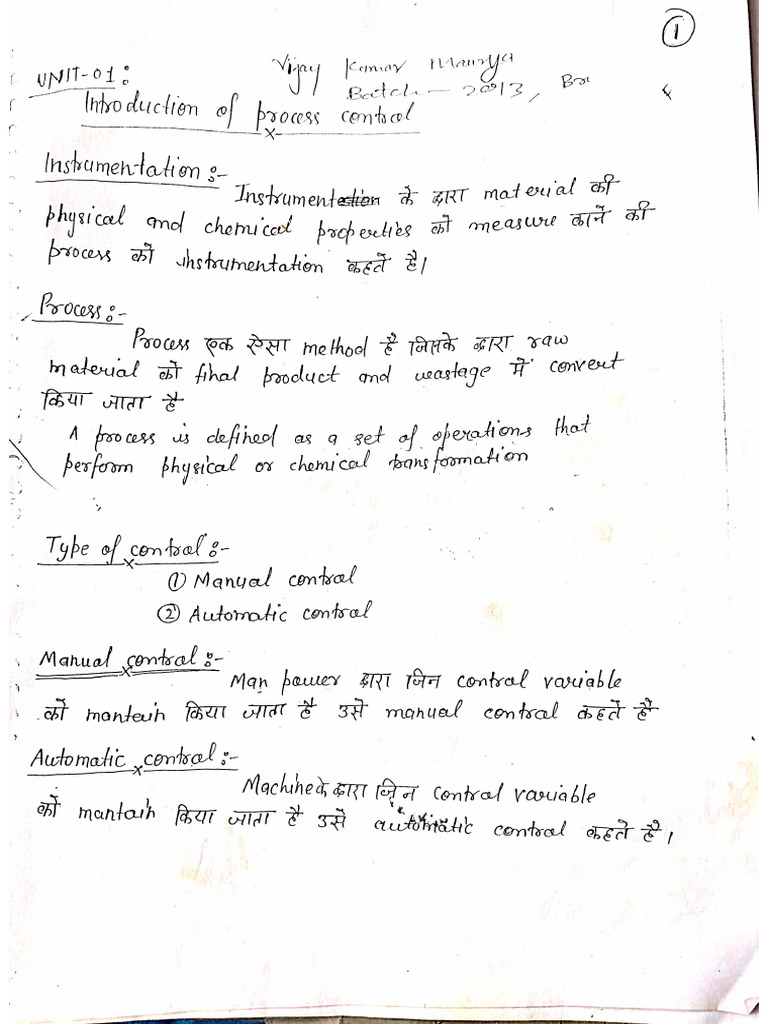 1
UNIT-01:
Vijay Kumar Maurya
Batch - 2013,
Introduction of process control
Instrumentation :-
Instrument के द्वारा material की
physical and chemical properties को measure करने की
process को instrumentation कहते है।
Process :-
Process एक ऐसा method है जिसके द्वारा raw
material को final product and wastage में convert
किया जाता है
A process is defined as a set of operations that
perform physical or chemical transformation
Type of control :-
① Manual control
② Automatic control
Manual control :-
Man power द्वारा जिन control variable
को mantain किया जाता है उसे manual control कहते है
Automatic control :-
Machine के द्वारा जिन control variable
को mantain किया जाता है उसे automatic control कहते है।